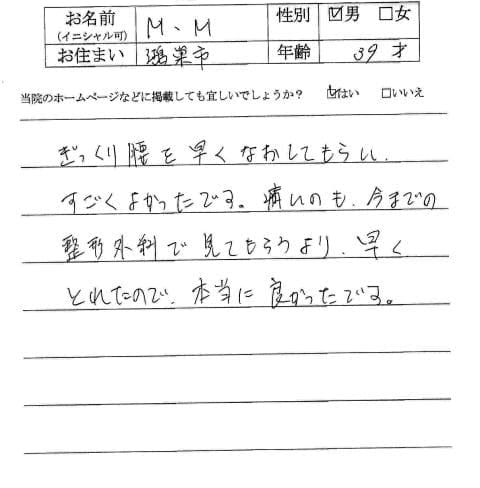 お名前 (イニシャル可) M、M 性別 ☑男 □女
お住まい 鴻巣市 年齢 39 才
当院のホームページなどに掲載しても宜しいでしょうか? ☑はい □いいえ
ぎっくり腰を早くなおしてもらい、
すごくよかったです。痛いのも、今までの
整形外科で見てもらうより、早く
とれたので、本当に良かったです。